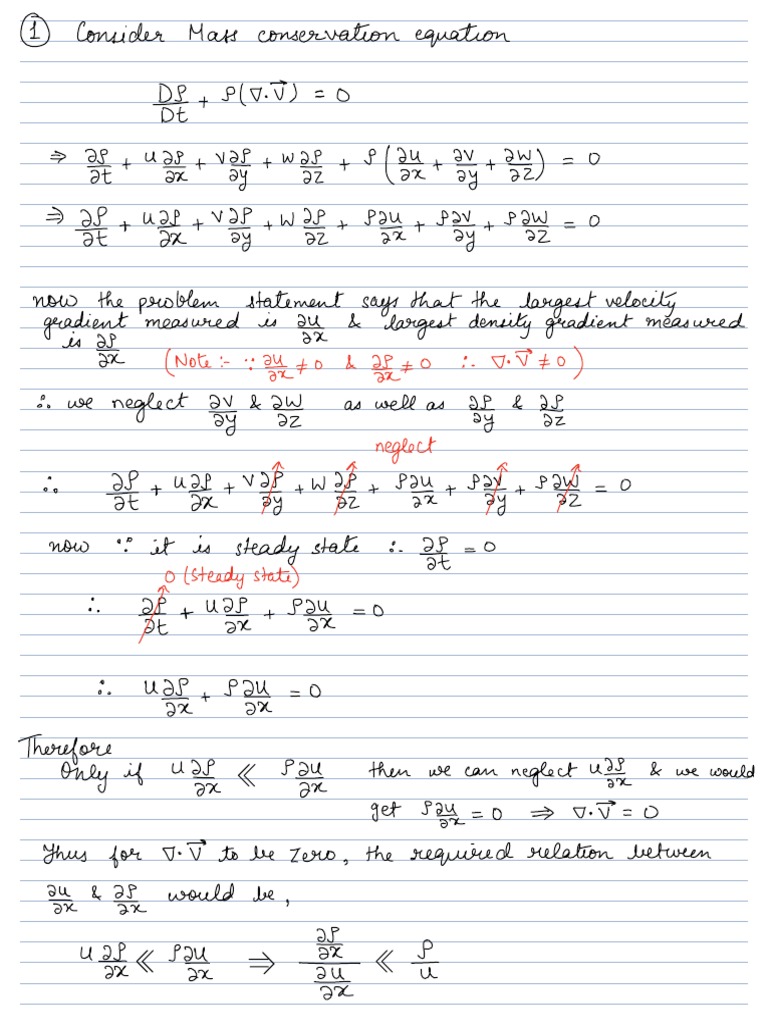 ① Consider Mass conservation equation
Dρ/Dt + ρ(∇·V⃗) = 0
⇒ ∂ρ/∂t + u∂ρ/∂x + v∂ρ/∂y + w∂ρ/∂z + ρ(∂u/∂x + ∂v/∂y + ∂w/∂z) = 0
⇒ ∂ρ/∂t + u∂ρ/∂x + v∂ρ/∂y + w∂ρ/∂z + ρ∂u/∂x + ρ∂v/∂y + ρ∂w/∂z = 0
now the problem statement says that the largest velocity
gradient measured is ∂u/∂x & largest density gradient measured
is ∂ρ/∂x (Note :- ∵ ∂u/∂x ≠ 0 & ∂ρ/∂x ≠ 0 ∴ ∇·V⃗ ≠ 0)
∴ we neglect ∂v/∂y & ∂w/∂z as well as ∂ρ/∂y & ∂ρ/∂z
neglect
∴ ∂ρ/∂t + u∂ρ/∂x + v∂ρ/∂y + w∂ρ/∂z + ρ∂u/∂x + ρ∂v/∂y + ρ∂w/∂z = 0
now ∵ it is steady state ∴ ∂ρ/∂t = 0
0 (steady state)
∴ ∂ρ/∂t + u∂ρ/∂x + ρ∂u/∂x = 0
∴ u∂ρ/∂x + ρ∂u/∂x = 0
Therefore
Only if u∂ρ/∂x ≪ ρ∂u/∂x then we can neglect u∂ρ/∂x & we would
get ρ∂u/∂x = 0 ⇒ ∇·V⃗ = 0
Thus for ∇·V⃗ to be zero, the required relation between
∂u/∂x & ∂ρ/∂x would be,
u∂ρ/∂x ≪ ρ∂u/∂x ⇒ (∂ρ/∂x)/(∂u/∂x) ≪ ρ/u